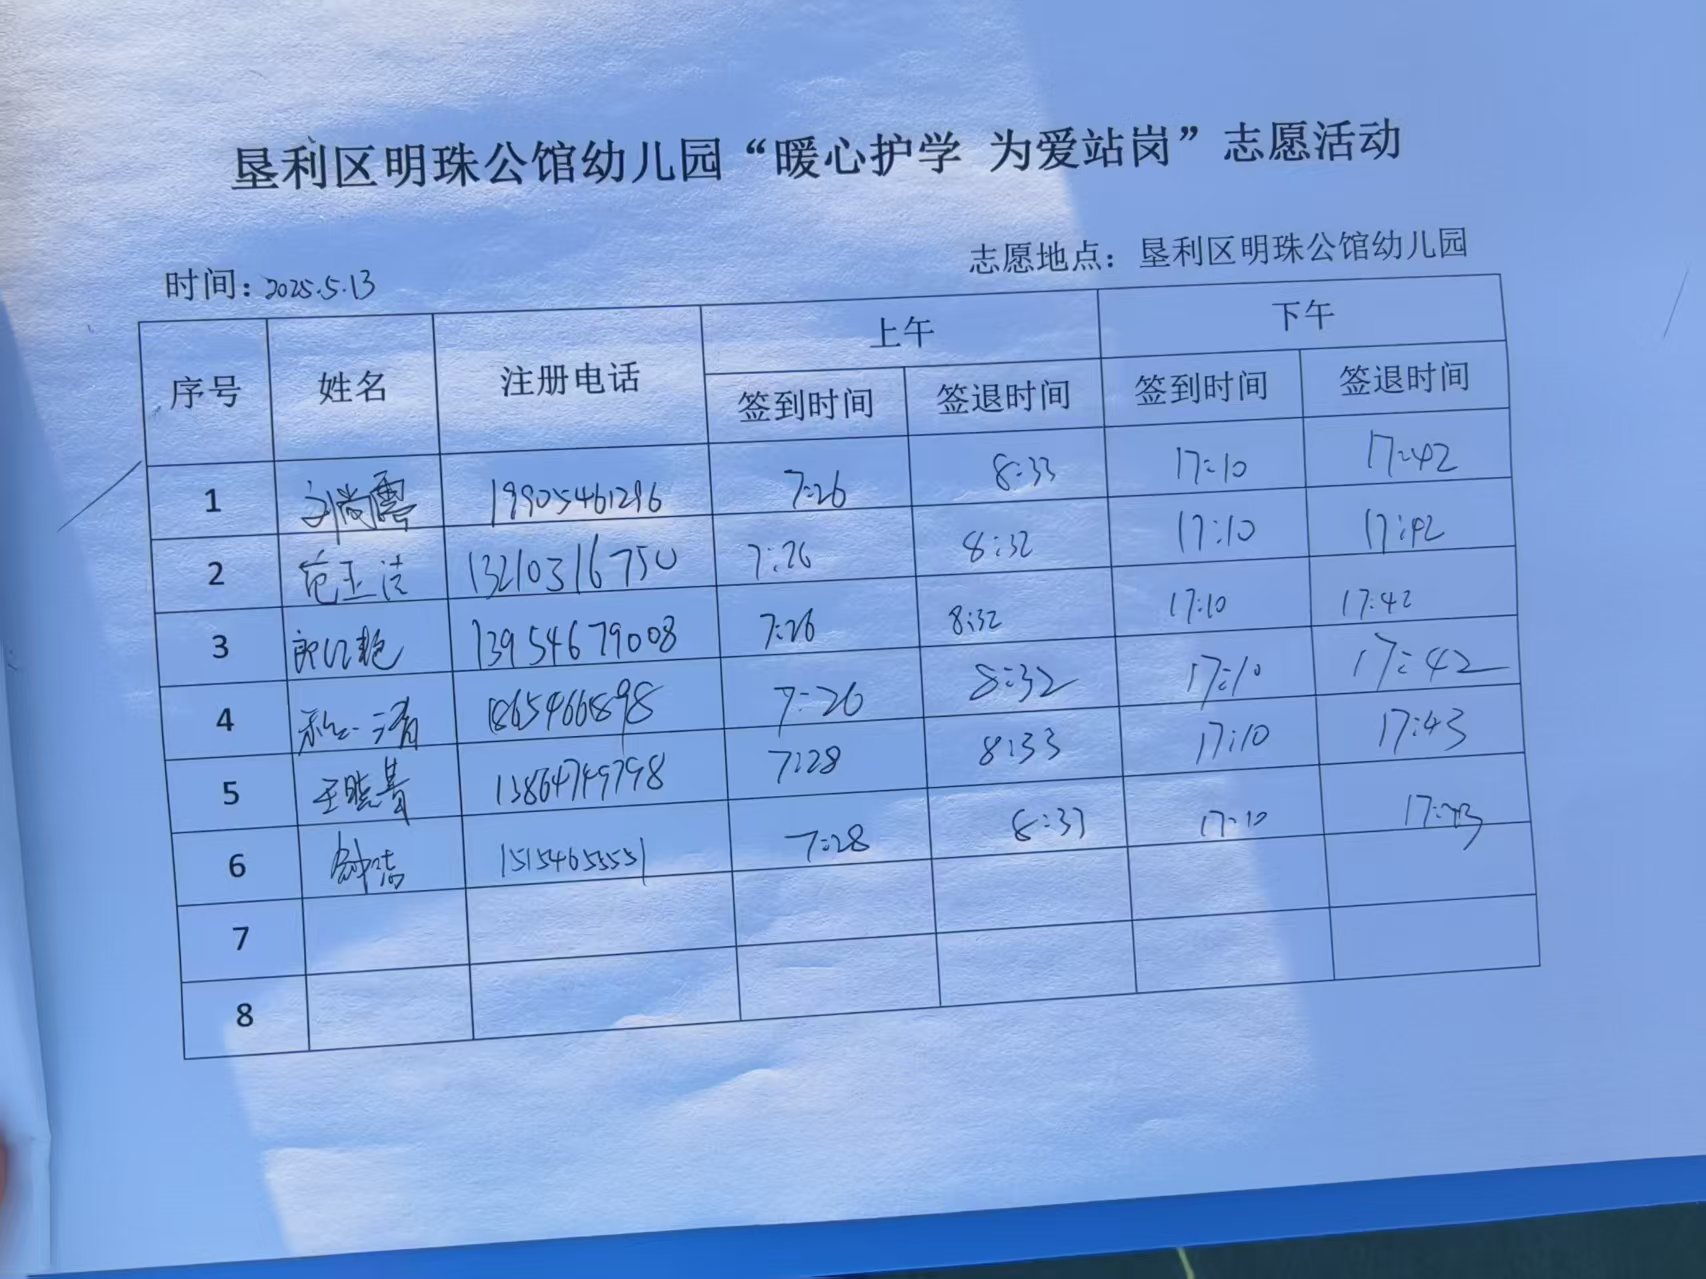 垦利区明珠公馆幼儿园“暖心护学 为爱站岗”志愿活动
时间：2025.5.13 志愿地点：垦利区明珠公馆幼儿园
序号 姓名 注册电话 上午 下午
签到时间 签退时间 签到时间 签退时间
1 刘尚霞 19905461296 7:26 8:33 17:10 17:42
2 范玉洁 13210316750 7:26 8:32 17:10 17:42
3 13954679008 7:26 8:32 17:10 17:42
4 18654666898 7:26 8:32 17:10 17:42
5 王晓菁 13864749798 7:28 8:33 17:10 17:43
6 15154653551 7:28 8:33 17:10 17:43
7
8